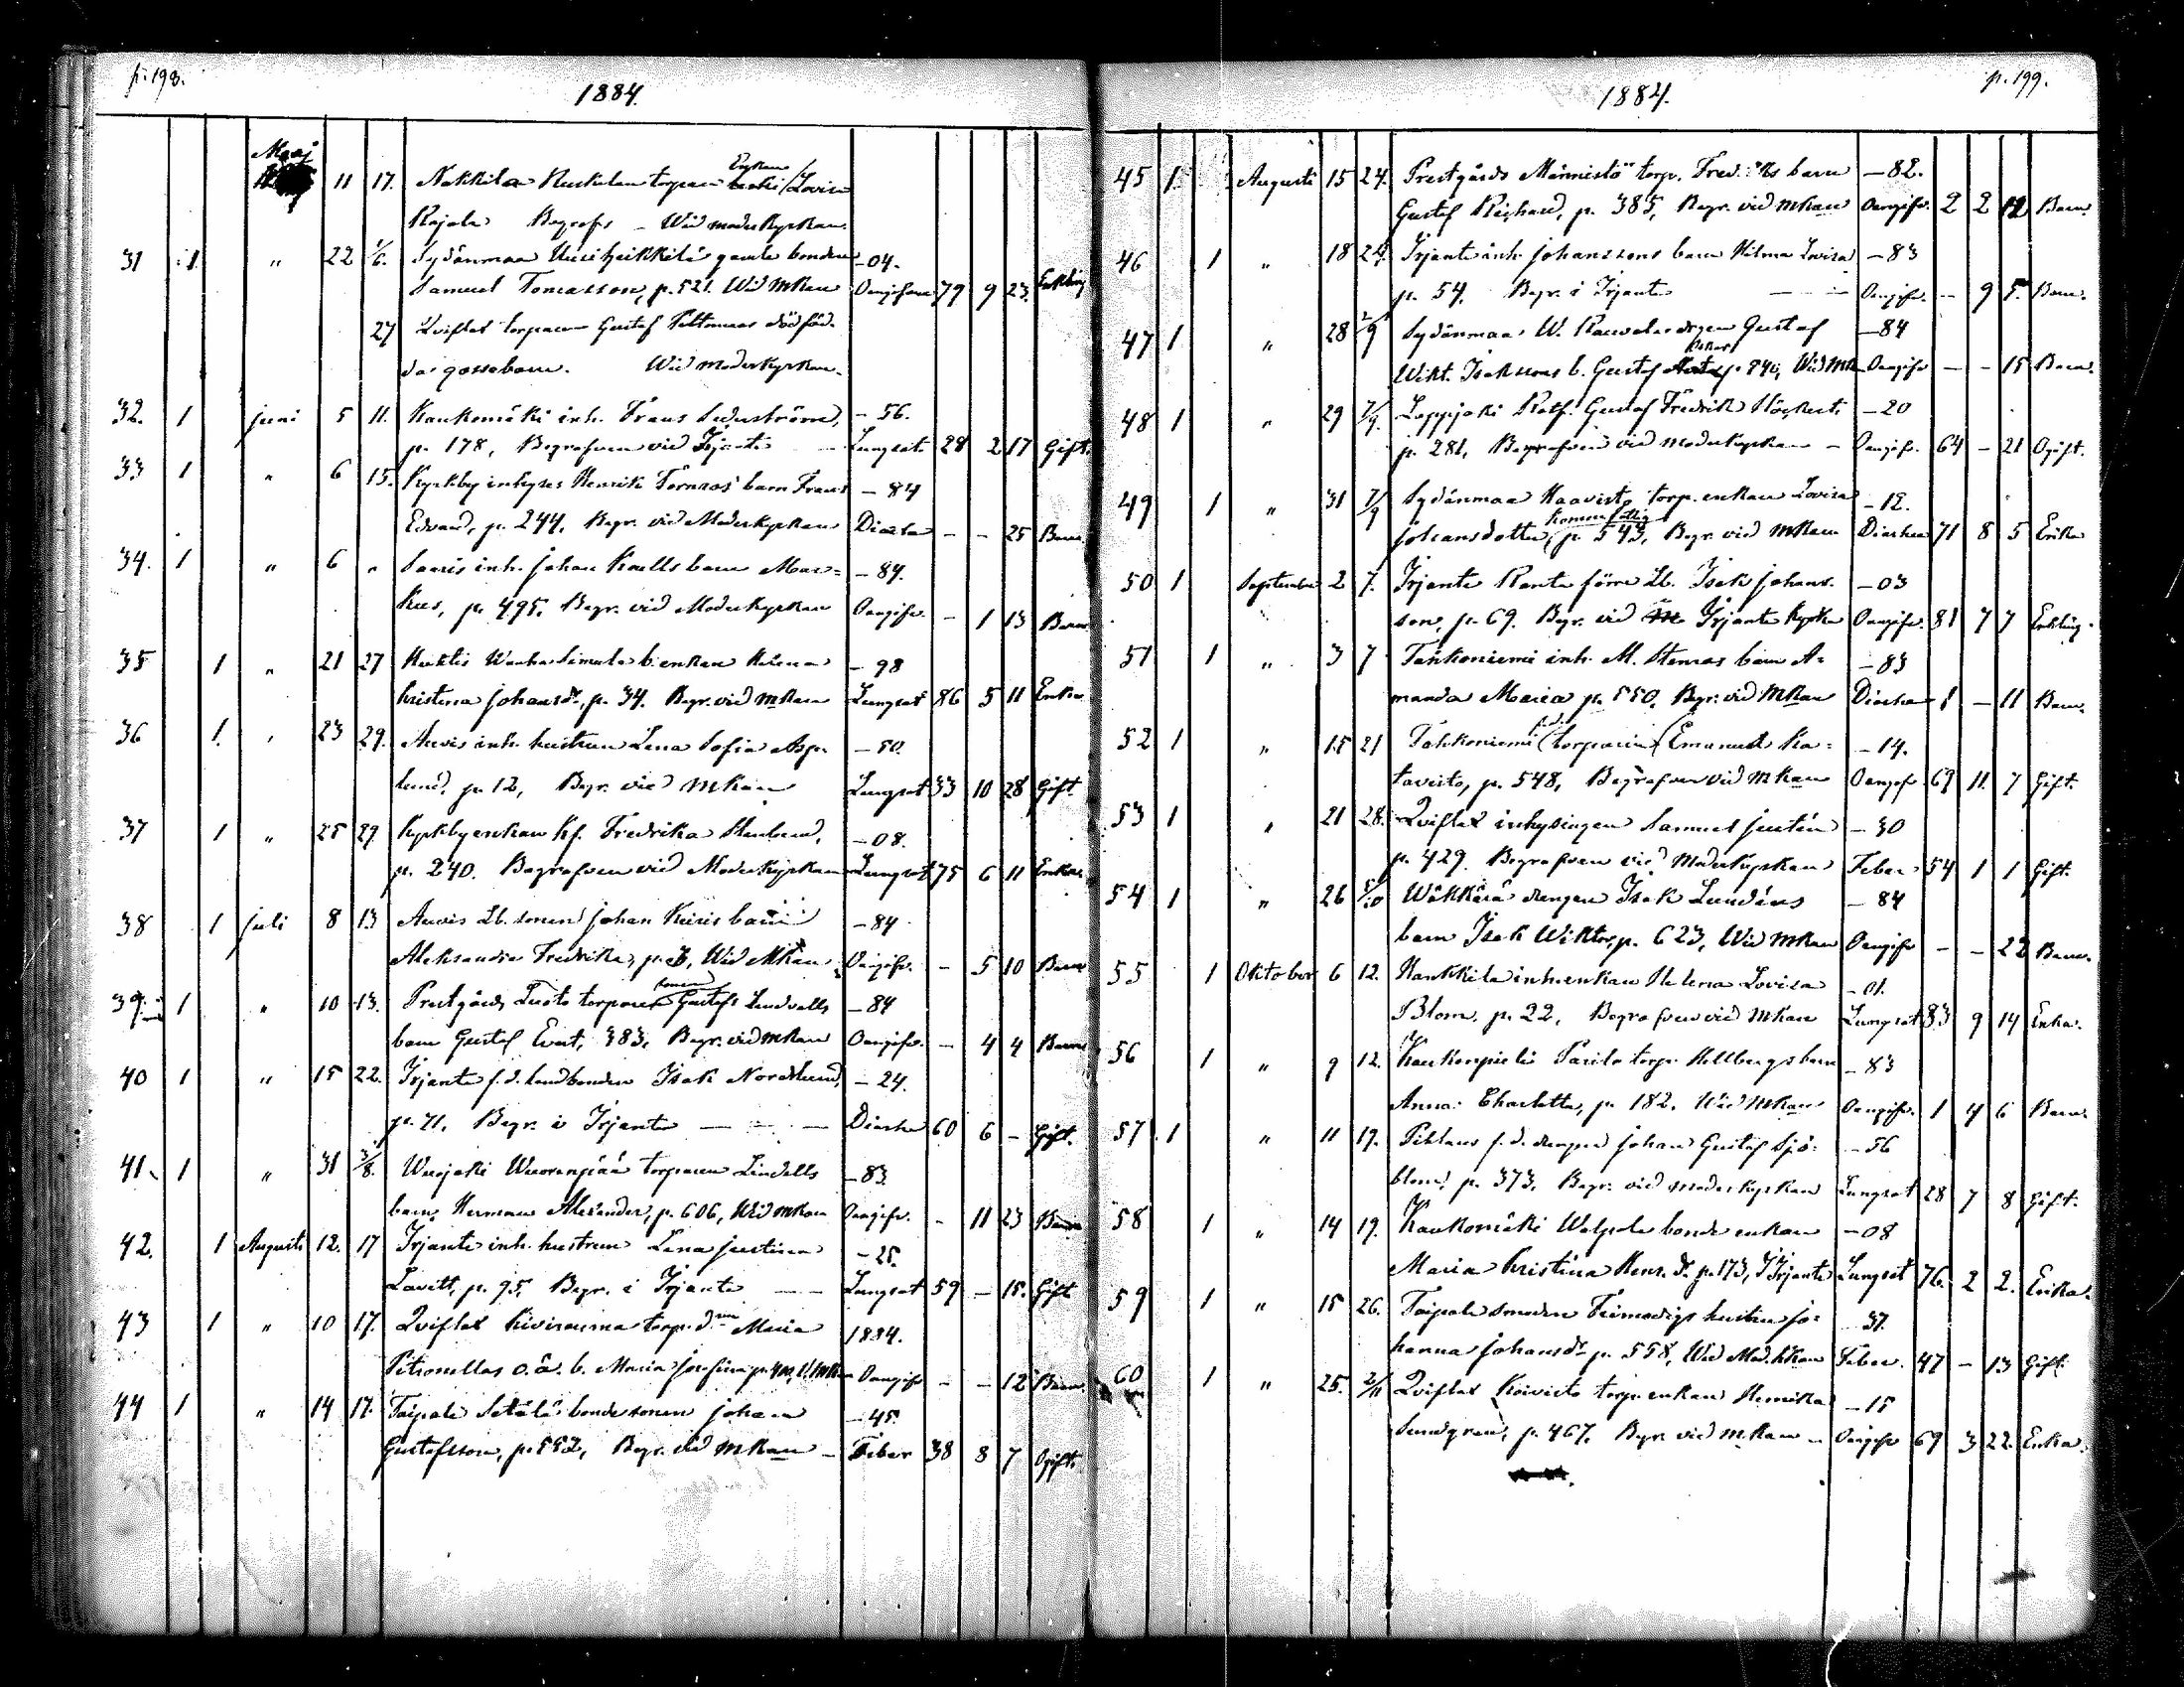 p. 198.
1884.
Maaj 11 17. Nakkila Ruskulan torpare Enkan Lovisa
Rajala Begrafs – Wid moderkyrkan.
31 1. " 22 1/6. Sydänmaa Uusiheikkilä gamle bonden – 04.
Samuel Tomasson, p. 521. Wid Mkan Oangifven 79 9 23. Enkling
27 Qviflax torparen Gustaf dödföd-
da gossebarn. Wid moderkyrkan.
32. 1 juni 5 11. Kaukomäki inh. Frans Sederström, – 56.
p. 178, Begrafven vid Irjante – Lungsot 28 2 17 Gift.
33 1 " 6 15. Kyrkby inhyses Henrik Törnroos barn Frans – 84
Edvard, p. 244, Begr. vid Moderkyrkan Diarrhe – – 25 Barn
34. 1 " 6 " Saaris inh. Johan Kaells barn Mar= – 84.
kus, p. 495. Begr. vid Moderkyrkan Oangifv. – 1 13 Barn
35 1 " 21 27 Wanha Simula b. enkan Helena – 98
Kristina Johansdr, p. 34. Begr. vid mkan Lungsot 86 5 11 Enka
36 1. " 23 29. Auvis inh. hustrun Lena Sofia Asp- – 50.
lund, p. 12, Begr. vid mkan Lungsot 33 10 28 Gift.
37 1 " 25 29 Kyrkby enkan Kf. Fredrika Stenlund, – 08.
p. 240. Begrafven vid Moderkyrkan Lungsot 75 6 11 Enka
38 1 juli 8 13 Auvis Lb. sonen Johan Keiris barn – 84
Aleksandra Fredrika, p. 3, Wid Mkan Oangifv. – 5 10 Barn
39. 1 " 10 13. Prestgårds Lusto torparesonen Gustaf Lindvalls – 84
barn Gustaf Evert, 383, Begr. vid mkan Oangifv. – 4 4 Barn
40 1 " 15 22. Irjante f. d. landbonden Isak Nordlund, – 24.
p. 71, Begr. i Irjante – – – Diarrhe 60 6 – Gift.
41. 1 " 31 3/8. Wuojoki Wuorenpää torparen Lindells – 83
barn Herman Alexander, p. 606, Wid mkan Oangifv. – 11 23 Barn
42. 1 Augusti 12. 17 Irjante inh. hustrun Lena Justina – 25.
Lavitt, p. 95, Begr. i Irjante – – Lungsot 59 – 15. Gift
43 1 " 10 17. Qviflax Kivirauma torp. d:rn Maria 1884.
Petronellas o. ä. b. Maria Josefina Oangifv – – 12 Barn.
44 1 " 14 17. Taipale Setälä bonde sonen Johan – 45.
Gustafsson, p. 552, Begr. vid mkan – Feber 38 8 7 Ogift.
p. 199.
1884.
45 1. Augusti 15 24. Prestgårds Männistö torp. Fred. barn – 82.
Gustaf Reinhard, p. 385, Begr. vid mkan Oangifv. 2 2 12 Barn.
46 1 " 18 24. Irjante inh. Johanssons barn Hilma Lovisa – 83
p. 54. Begr. i Irjante – – Oangifv. – 9 5. Barn.
47 1 " 28 2/9 Sydänmaa W. Rauvola drgen Gustaf – 84
Wikt. Isakssons b. Gustaf Oskar Wid Mk Oangifv – – 15 Barn.
48 1 " 29 7/9. Lappjoki Rotf. Gustaf Fredrik Höckert – 20
p. 281, Begrafven vid moderkyrkan – Oangifv. 64 – 21 Ogift.
49 1 " 31 7/9 Sydänmaa Haavisto torp. enkan Lovisa – 12.
Johansdotter, p. 543, Begr. vid mkan Diarrhea 71 8 5 Enka
50 1 September 2 7. Irjante Ranta förre Lb. Isak Johans- – 03
son, p. 69. Begr. vid Irjante kyrka Oangifv. 81 7 7 Enkling.
51 1 " 3 7 Tahkoniemi inh. M. Stenros barn A= – 83
manda Maria p. 550. Begr. vid Mkan Diarrhea 1 – 11 Barn.
52 1 " 15 21 Tahkoniemi f.d. torparen Emanuel Ka= – 14.
tavisto, p. 548, Begrafven vid mkan Oangifv 69 11. 7 Gift.
53 1 " 21 28. Qviflax inhysingen Samuel Justén – 30
p. 429. Begrafven vid Moderkyrkan Feber 54 1 1 Gift.
54 1 " 26 5/10 Wäkkärä drengen Isak Lundéns – 84
barn Isak Wiktor, p. 623, Wid mkan Oangifv – – 22 Barn.
55 1 Oktober 6 12. Hankkila inh. enkan Helena Lovisa – 01.
Blom. p. 22, Begrafven vid mkan Lungsot 83 9 14 Enka.
56 1 " 9 12. Kaukonpieli torp. Hellbergs barn – 83
Anna Charlotta, p. 182. Wid mkan Oangifv. 1 4 6 Barn.
57 1 " 11 19. Pihlaus f. d. drengen Johan Gustaf Sjö= – 56
blom, p. 373, Begr. vid moderkyrkan Lungsot 28 7 8 Gift.
58 1 " 14 19. Kaukomäki Walpola bonde enkan – 08
Maria Kristina Henr. dr p. 173, I Irjante Lungsot 76. 2 2. Enka.
59 1 " 15 26. Taipale smeden hustru Jo= – 37.
hanna Johansdr p. 558, Wid Mod. kkan Feber. 47 – 13 Gift
60 1 " 25. 2/11 Qviflax Koivisto torp. enkan Henrika – 15
Sundgren, p. 467, Begr. vid mkan – Oangifv 69 3 22. Enka.